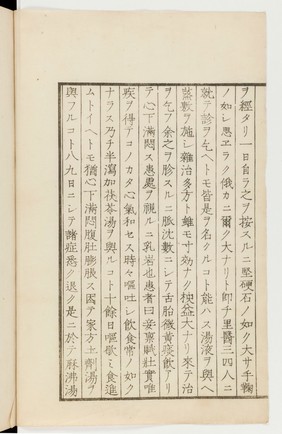 ヲ經タリ一日自ラ之ヲ按スルニ堅硬石ノ如ク大サ手鞠
ノ如シ愚エラク俄カニ爾ク大ナリト即チ里醫三四人ニ
就テ診ヲ乞ヘトモ皆是ヲ名クルコト能ハス湯液ヲ與ヘ
蒸數ヲ施シ雜治多方ト雖モ寸効ナク殃益大ナリ來テ治
ヲ乞フ余之ヲ診スルニ脈沈數ニシテ舌胎微黄痰飲アリ
テ心下滿悶ス患處ヲ視ルニ乳岩也患者曰妾稟賦壮實唯
疾ヲ得テコノカタ心氣和セス時々嘔吐シ飲食常ノ如ク
ナラス乃チ半瀉加茯苓湯ヲ與ルコト十餘日嘔歇ミ食進
ムトイヘトモ猶心下滿悶腹肚膨脹ス因テ家方土劑湯ヲ
與フルコト八九日ニシテ諸症悉ク退ク是ニ於テ麻沸湯